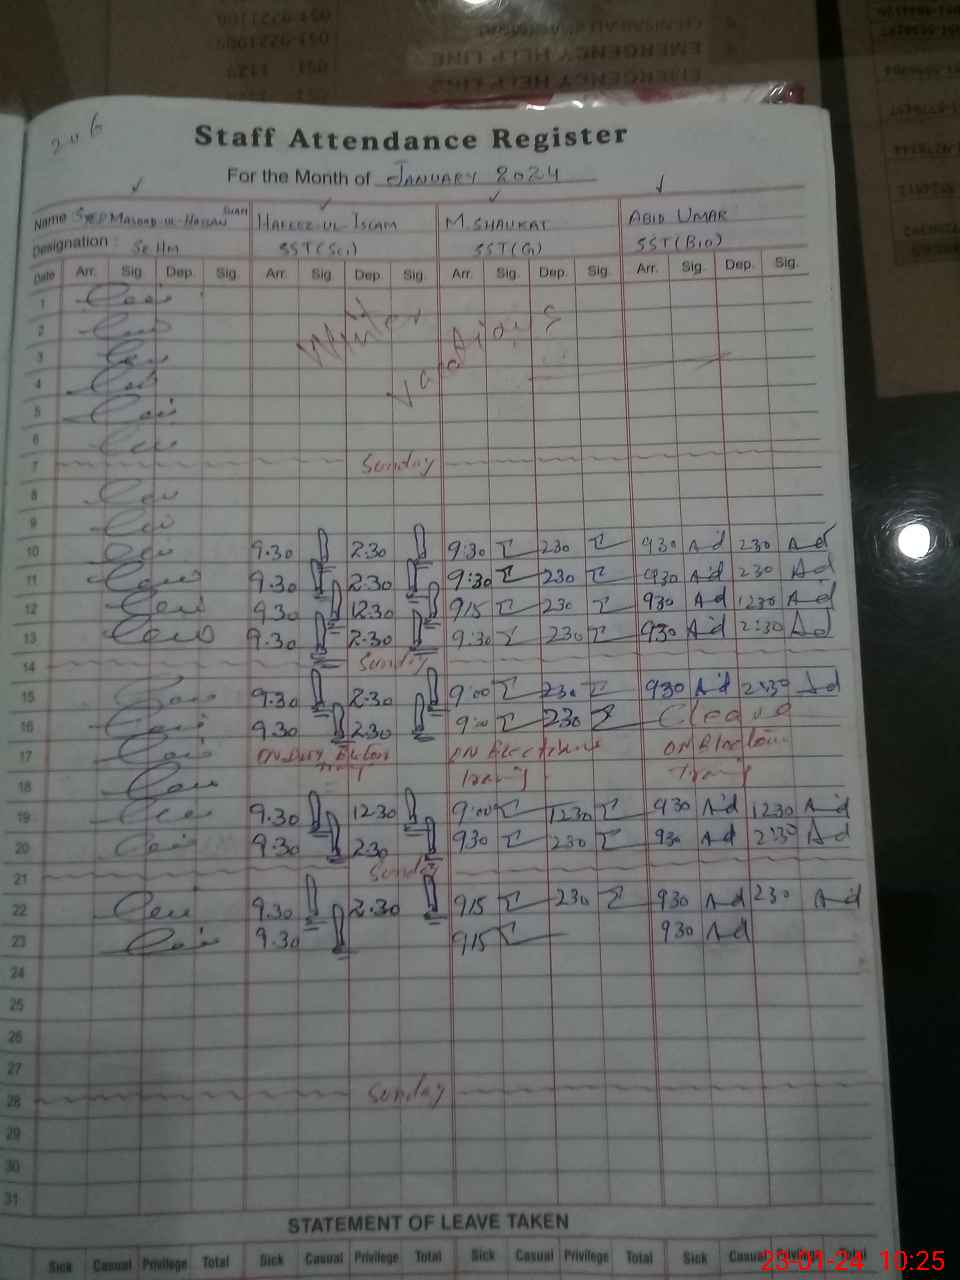 206
Staff Attendance Register
For the Month of JANUARY 2024
Name SYED MASOOD-UL-HASSAN SHAH HAFEEZ-UL-ISLAM M. SHAUKAT ABID UMAR
Designation : Sr HM SST(Sci) SST(G) SST(Bio)
Date Arr. Sig Dep. Sig. Arr. Sig Dep. Sig. Arr. Sig. Dep. Sig. Arr. Sig. Dep. Sig.
1
2 Winter
3 Vacations
4
5
6
7 Sunday
8
9
10 9.30 2.30 9:30 230 930 Ad 230 Ad
11 9.30 2.30 9:30 230 930 Ad 230 Ad
12 9.30 12.30 915 230 930 Ad 1230 Ad
13 9.30 2.30 9:30 230 930 Ad 2:30 Ad
14 Sunday
15 9.30 2.30 9:00 230 930 Ad 2:30 Ad
16 9.30 2.30 9:00 230 C leave
17 ON Duty Election ON Election ON Election
18 Training Training
19 9.30 12.30 9:00 1230 930 Ad 1230 Ad
20 9.30 2.30 930 230 930 Ad 2:30 Ad
21 Sunday
22 9.30 2.30 915 230 930 Ad 230 Ad
23 9.30 915 930 Ad
24
25
26
27
28 Sunday
29
30
31
STATEMENT OF LEAVE TAKEN
Sick Casual Privilege Total Sick Casual Privilege Total Sick Casual Privilege Total Sick Casual Privilege Total
23-01-24 10:25